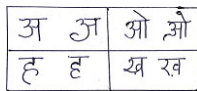 अ अ ओ ओ
ह ह ख ख़